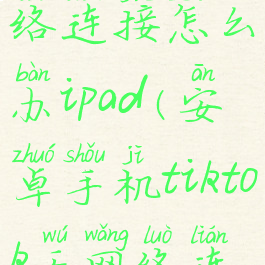 络连接怎么
bàn ān
办ipad(安
zhuó shǒu jī
卓手机tikto
wú wǎng luò lián
k无网络连